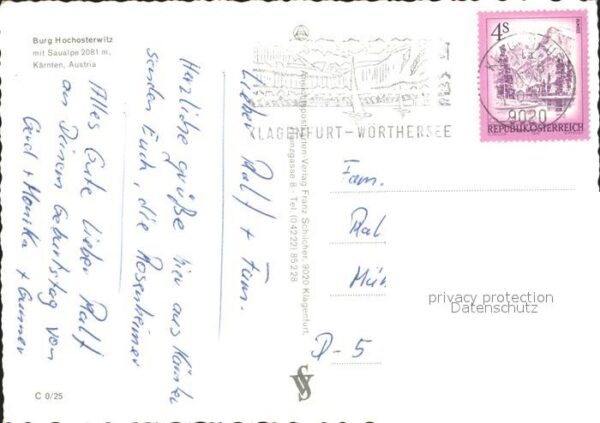 Burg Hochosterwitz
mit Saualpe 2081 m,
Kärnten, Austria
Lieber Ralf + Fam.
Herzliche Grüße hier aus Kärnten
senden Euch, die Rosenheimer
Alles Gute lieber Ralf
an Deinem Geburtstag von
Gerd + Monika + Gunner
C 0/25
KLAGENFURT-WÖRTHERSEE
Ansichtspostkarten-Verlag Franz Schilcher, 9020 Klagenfurt,
gasse 8 - Tel. (04222) 85228
4S
9020
REPUBLIK ÖSTERREICH
Fam.
Ral
Mün
D-5
privacy protection
Datenschutz